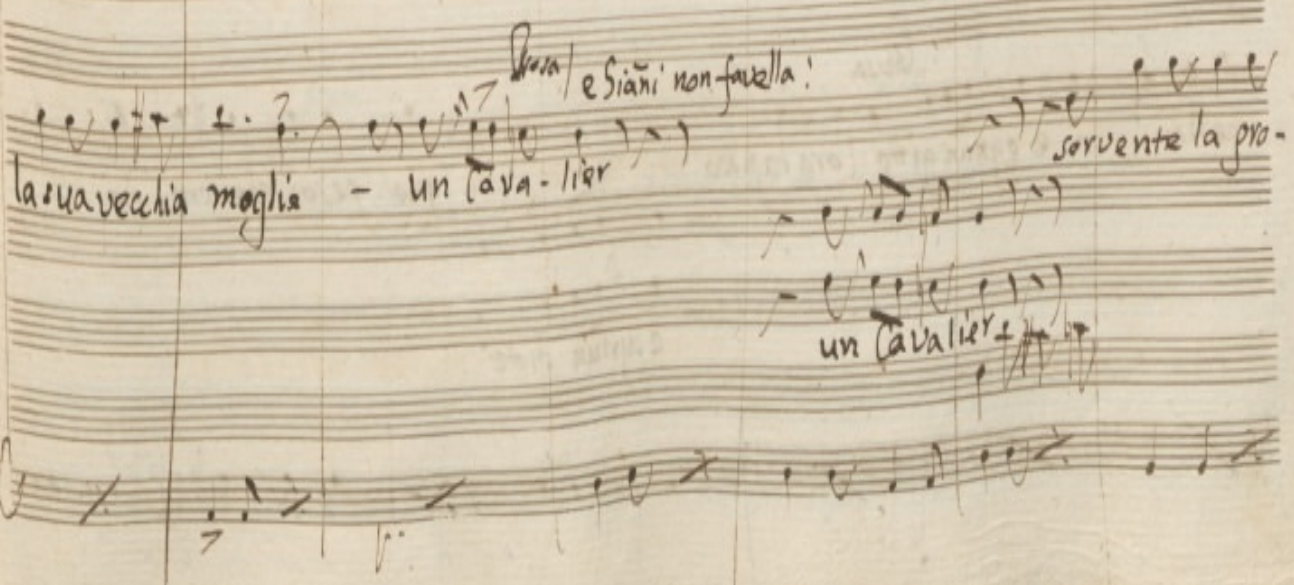 e Siañi non favella!
la sua vecchia moglie - un Cava-lier
servente la pro-
un Cavalier